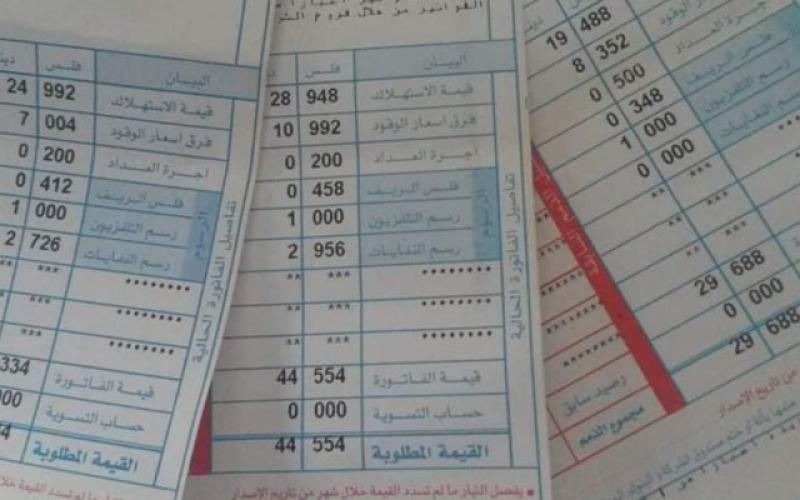 البيان فلس دينـ
قيمة الاستهلاك 992 24
فرق اسعار الوقود 004 7
اجرة العداد 200 0
فلس الريف 412 0
رسم التلفزيون 000 1
رسم النفايات 726 2
الرسوم
******** *** **
********
********
قيمة الفاتورة 334
حساب التسوية 000
القيمة المطلوبة
تفاصيل الفاتورة الحالية
يفصل التيار ما لم تسدد القيمة خلا
الفواتير من خلال فروع
البيان فلس
قيمة الاستهلاك 948 28
فرق اسعار الوقود 992 10
اجرة العداد 200 0
فلس الريف 458 0
رسم التلفزيون 000 1
رسم النفايات 956 2
الرسوم
******** *** **
******** *** **
******** *** **
قيمة الفاتورة 554 44
حساب التسوية 000 0
القيمة المطلوبة 554 44
تفاصيل الفاتورة الحالية
يفصل التيار ما لم تسدد القيمة خلال شهر من تاريخ الاصدار
488 19
فرق اسعار الوقود 352 8
اجرة العداد 500 0
فلس الريف 348 0
رسم التلفزيون 000 1
رسم النفايات 000 0
688 29
000 0
688 29
رصيد سابق
مجموع الدعم
من تاريخ الإصدار